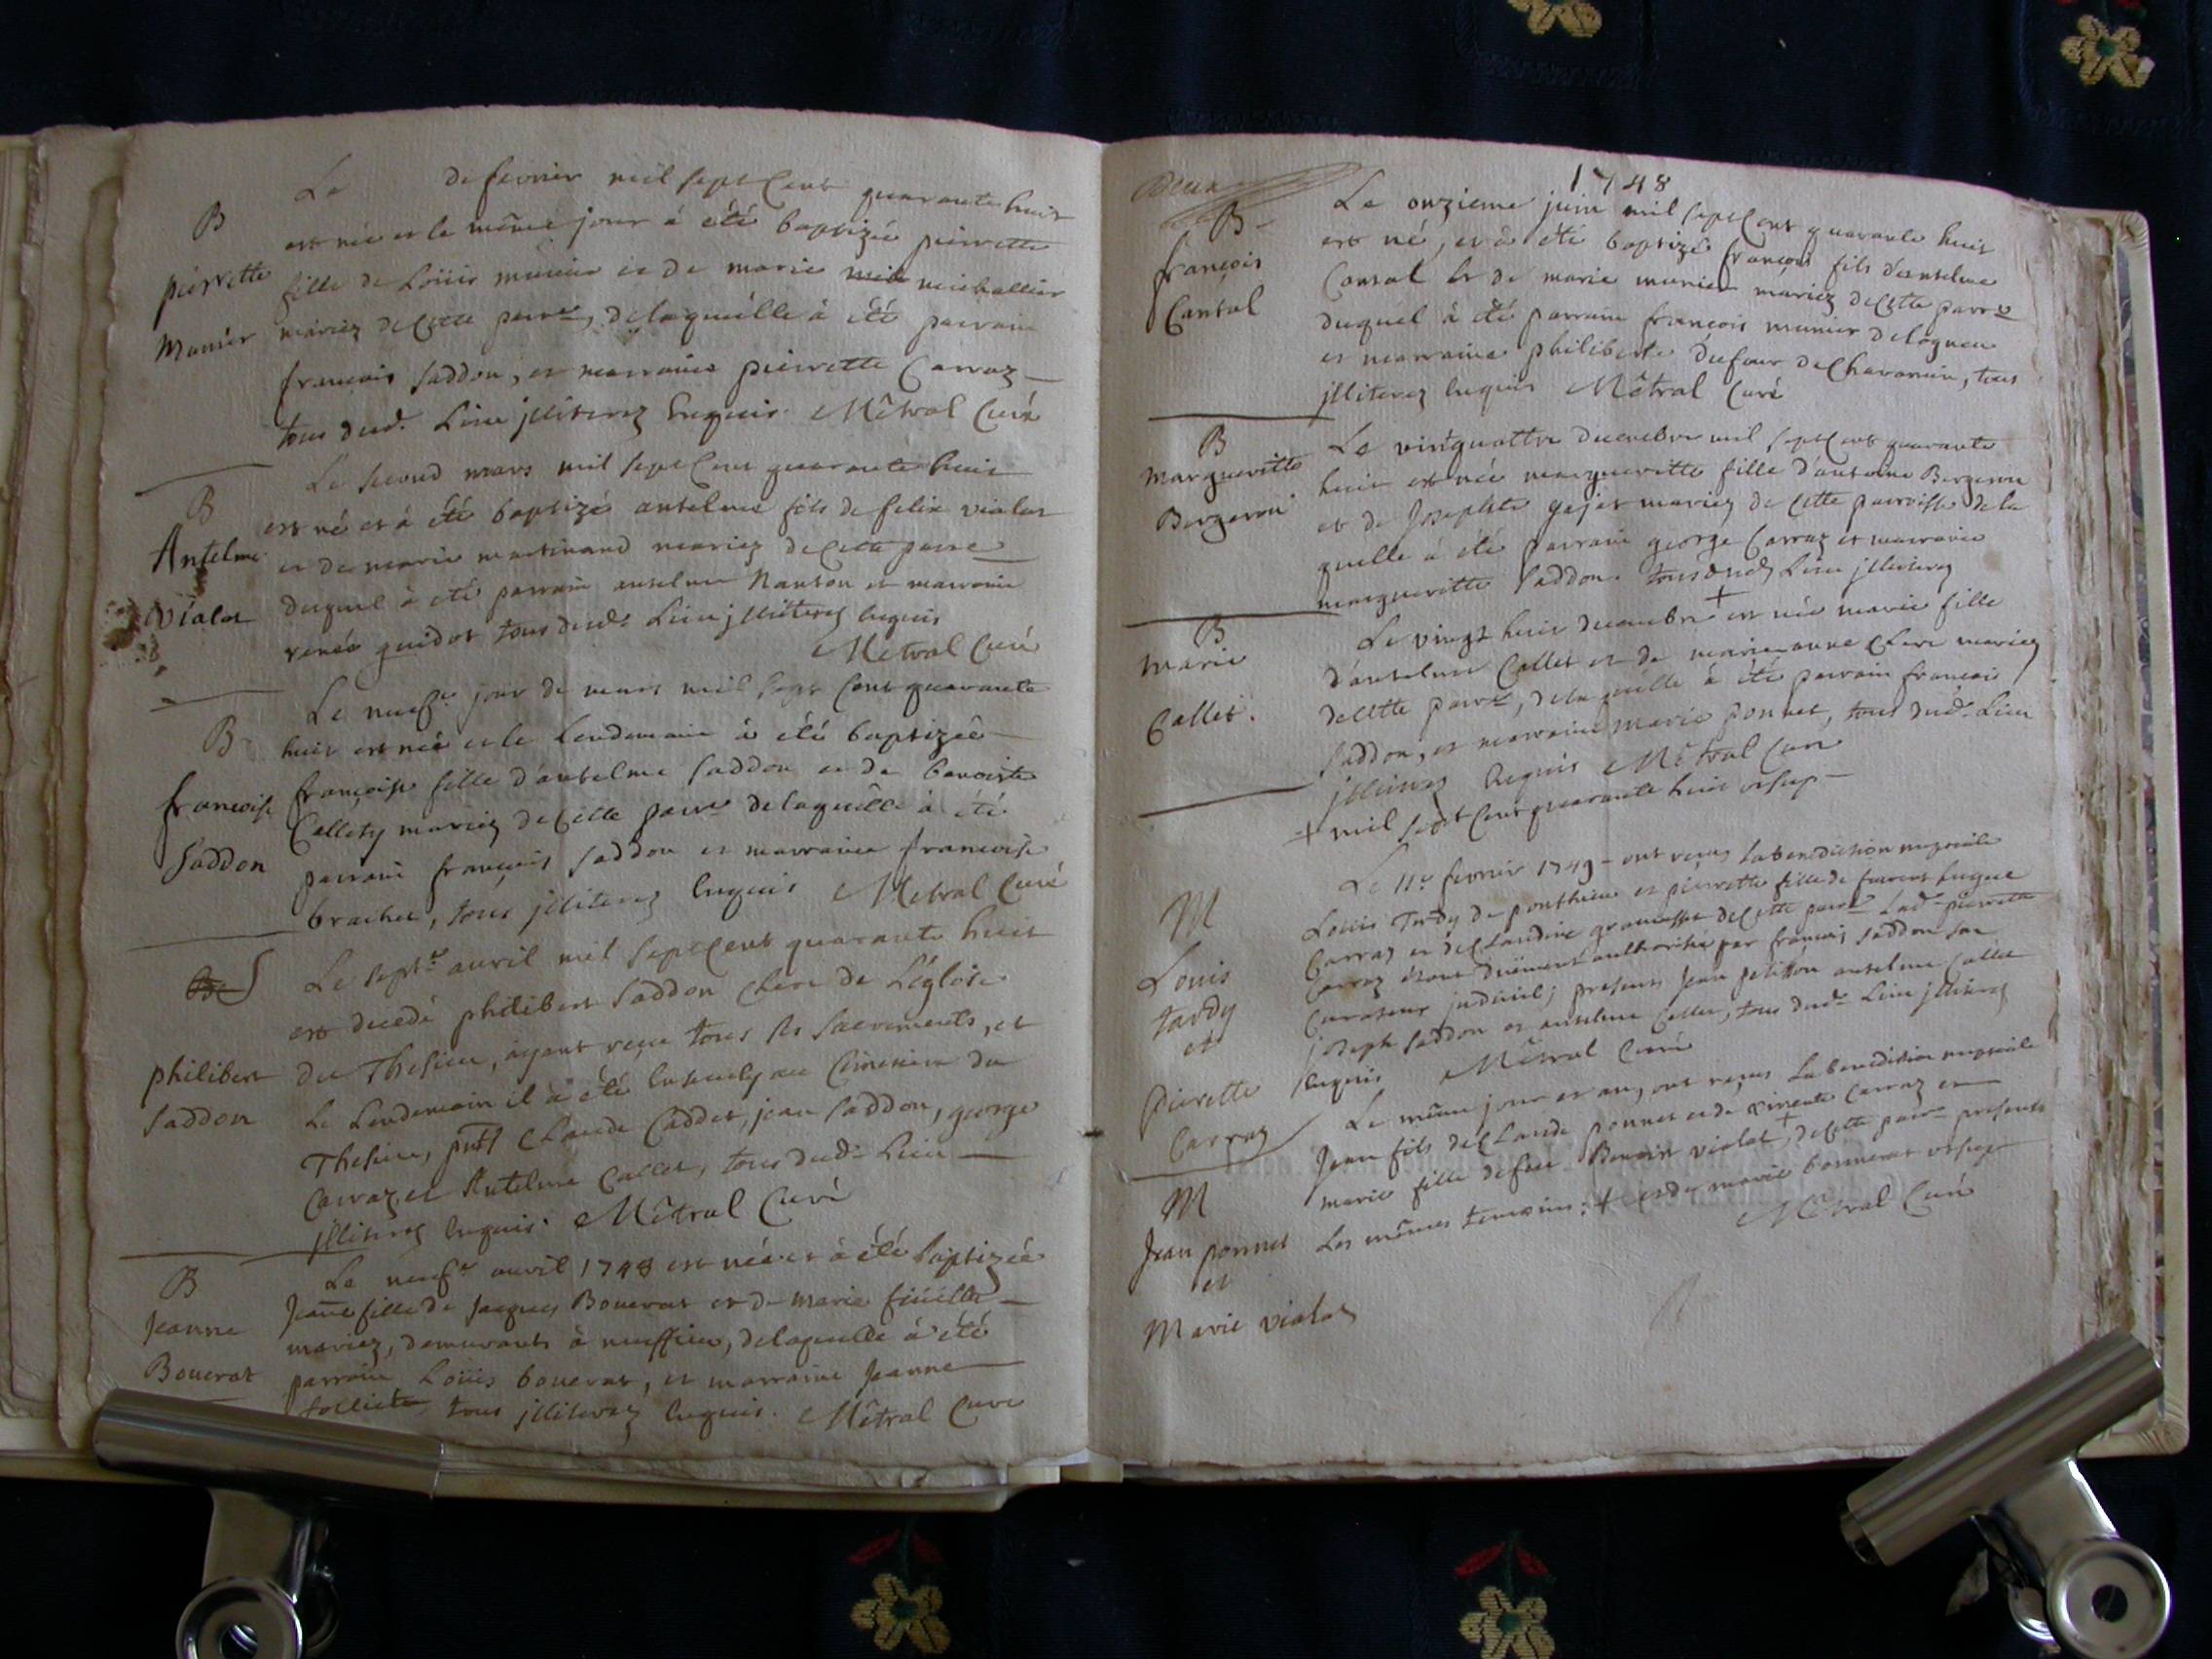 B
pierrette
Munier
Le de fevrier mil sept Cent quarante huit
est née et le même jour à été baptizée pierrette
fille de Loüis munier et de marie
mariez de Cette parre, de laquelle à été parrain
françois saddon, et marraine pierrette Carraz
tous dud. Lieu jlliterez Enquis. Mêtral Curé
B
Antelme
violat
Le second mars mil sept Cent quarante huit
est né et à été baptizé antelme fils de felix violat
et de marie martinand mariez de Cette parre
duquel à été parrain antelme Nanton et marraine
renée guidot tous dud. Lieu jlliterez enquis
Mêtral Curé
B
françoise
Saddon
Le neufe jour de mars mil sept Cent quarante
huit est née et le Lendemain à été baptizée
françoise fille d'antelme saddon et de benoiste
mariez de Cette parre de laquelle à été
parrain françois saddon et marraine françoise
brachet, tous jlliterez Enquis Mêtral Curé
S
philibert
Saddon
Le septe avril mil sept Cent quarante huit
est decedé philibert Saddon Clerc de L'église
de Thesieu, ayant reçu tous ses sacrements, et
Le Lendemain il à été Ensevely au Cimetiere du
Thesieu, Claude Caddet, jean saddon, george
Carraz et Antelme Callet, tous dud. Lieu
jlliterez Enquis. Mêtral Curé
B
Jeanne
Bouerat
Le neufe avril 1748 est née et à été baptizée
Jeane fille de Jacques Bouerat et de marie
mariez, demeurants à neuffieu, de laquelle à été
parrain Loüis bouerat, et marraine Jeanne
tous jlliterez Enquis. Mêtral Curé
1748
B
françois
Cantal
Le onzieme juin mil sept Cent quarante huit
est né, et à été baptizé françois fils d'antelme
Cantal et de marie munier mariez de Cette parre
duquel à été parrain françois munier de
et marraine philiberte dufour de Chavornin, tous
jlliterez Enquis Mêtral Curé
B
Marguerite
Bergeron
Le vintquattre decembre mil sept Cent quarante
huit est née marguerite fille d'antoine Bergeron
et de Josephte gojet mariez de Cette parroisse de la
quelle à été parrain george Carraz et marraine
marguerite saddon. tous dud. Lieu jlliterez
B
Marie
Callet.
Le vingt huit decembre + est née marie fille
d'antelme Callet et de marie anne Clerc mariez
de Cette parre, de laquelle à été parrain françois
saddon, et marraine marie ponnet, tous dud. Lieu
jlliterez Enquis Mêtral Curé
+ mil sept Cent quarante huit
M
Louis
tardy
et
pierrette
Carraz
Le 11e fevrier 1749 - ont reçus la benediction nuptiale
Loüis Tardy de ponthieu et pierrette fille de
Carraz et de Claudine de Cette parre Lad. pierrette
Carraz étant düement authorisée par françois saddon son
Curateur judiciel; presents jean petitton antelme Callet
joseph saddon et antelme Callet, tous dud. Lieu jlliterez
Enquis Mêtral Curé
M
Jean ponnet
et
Marie violat
Le même jour et an, ont reçus La benediction nuptiale
Jean fils de Claude ponnet et de vincente Carraz et
marie fille de feu Benoist violat + de Cette parre presents
Les mêmes temoins; + et de marie bonnerat
Mêtral Curé